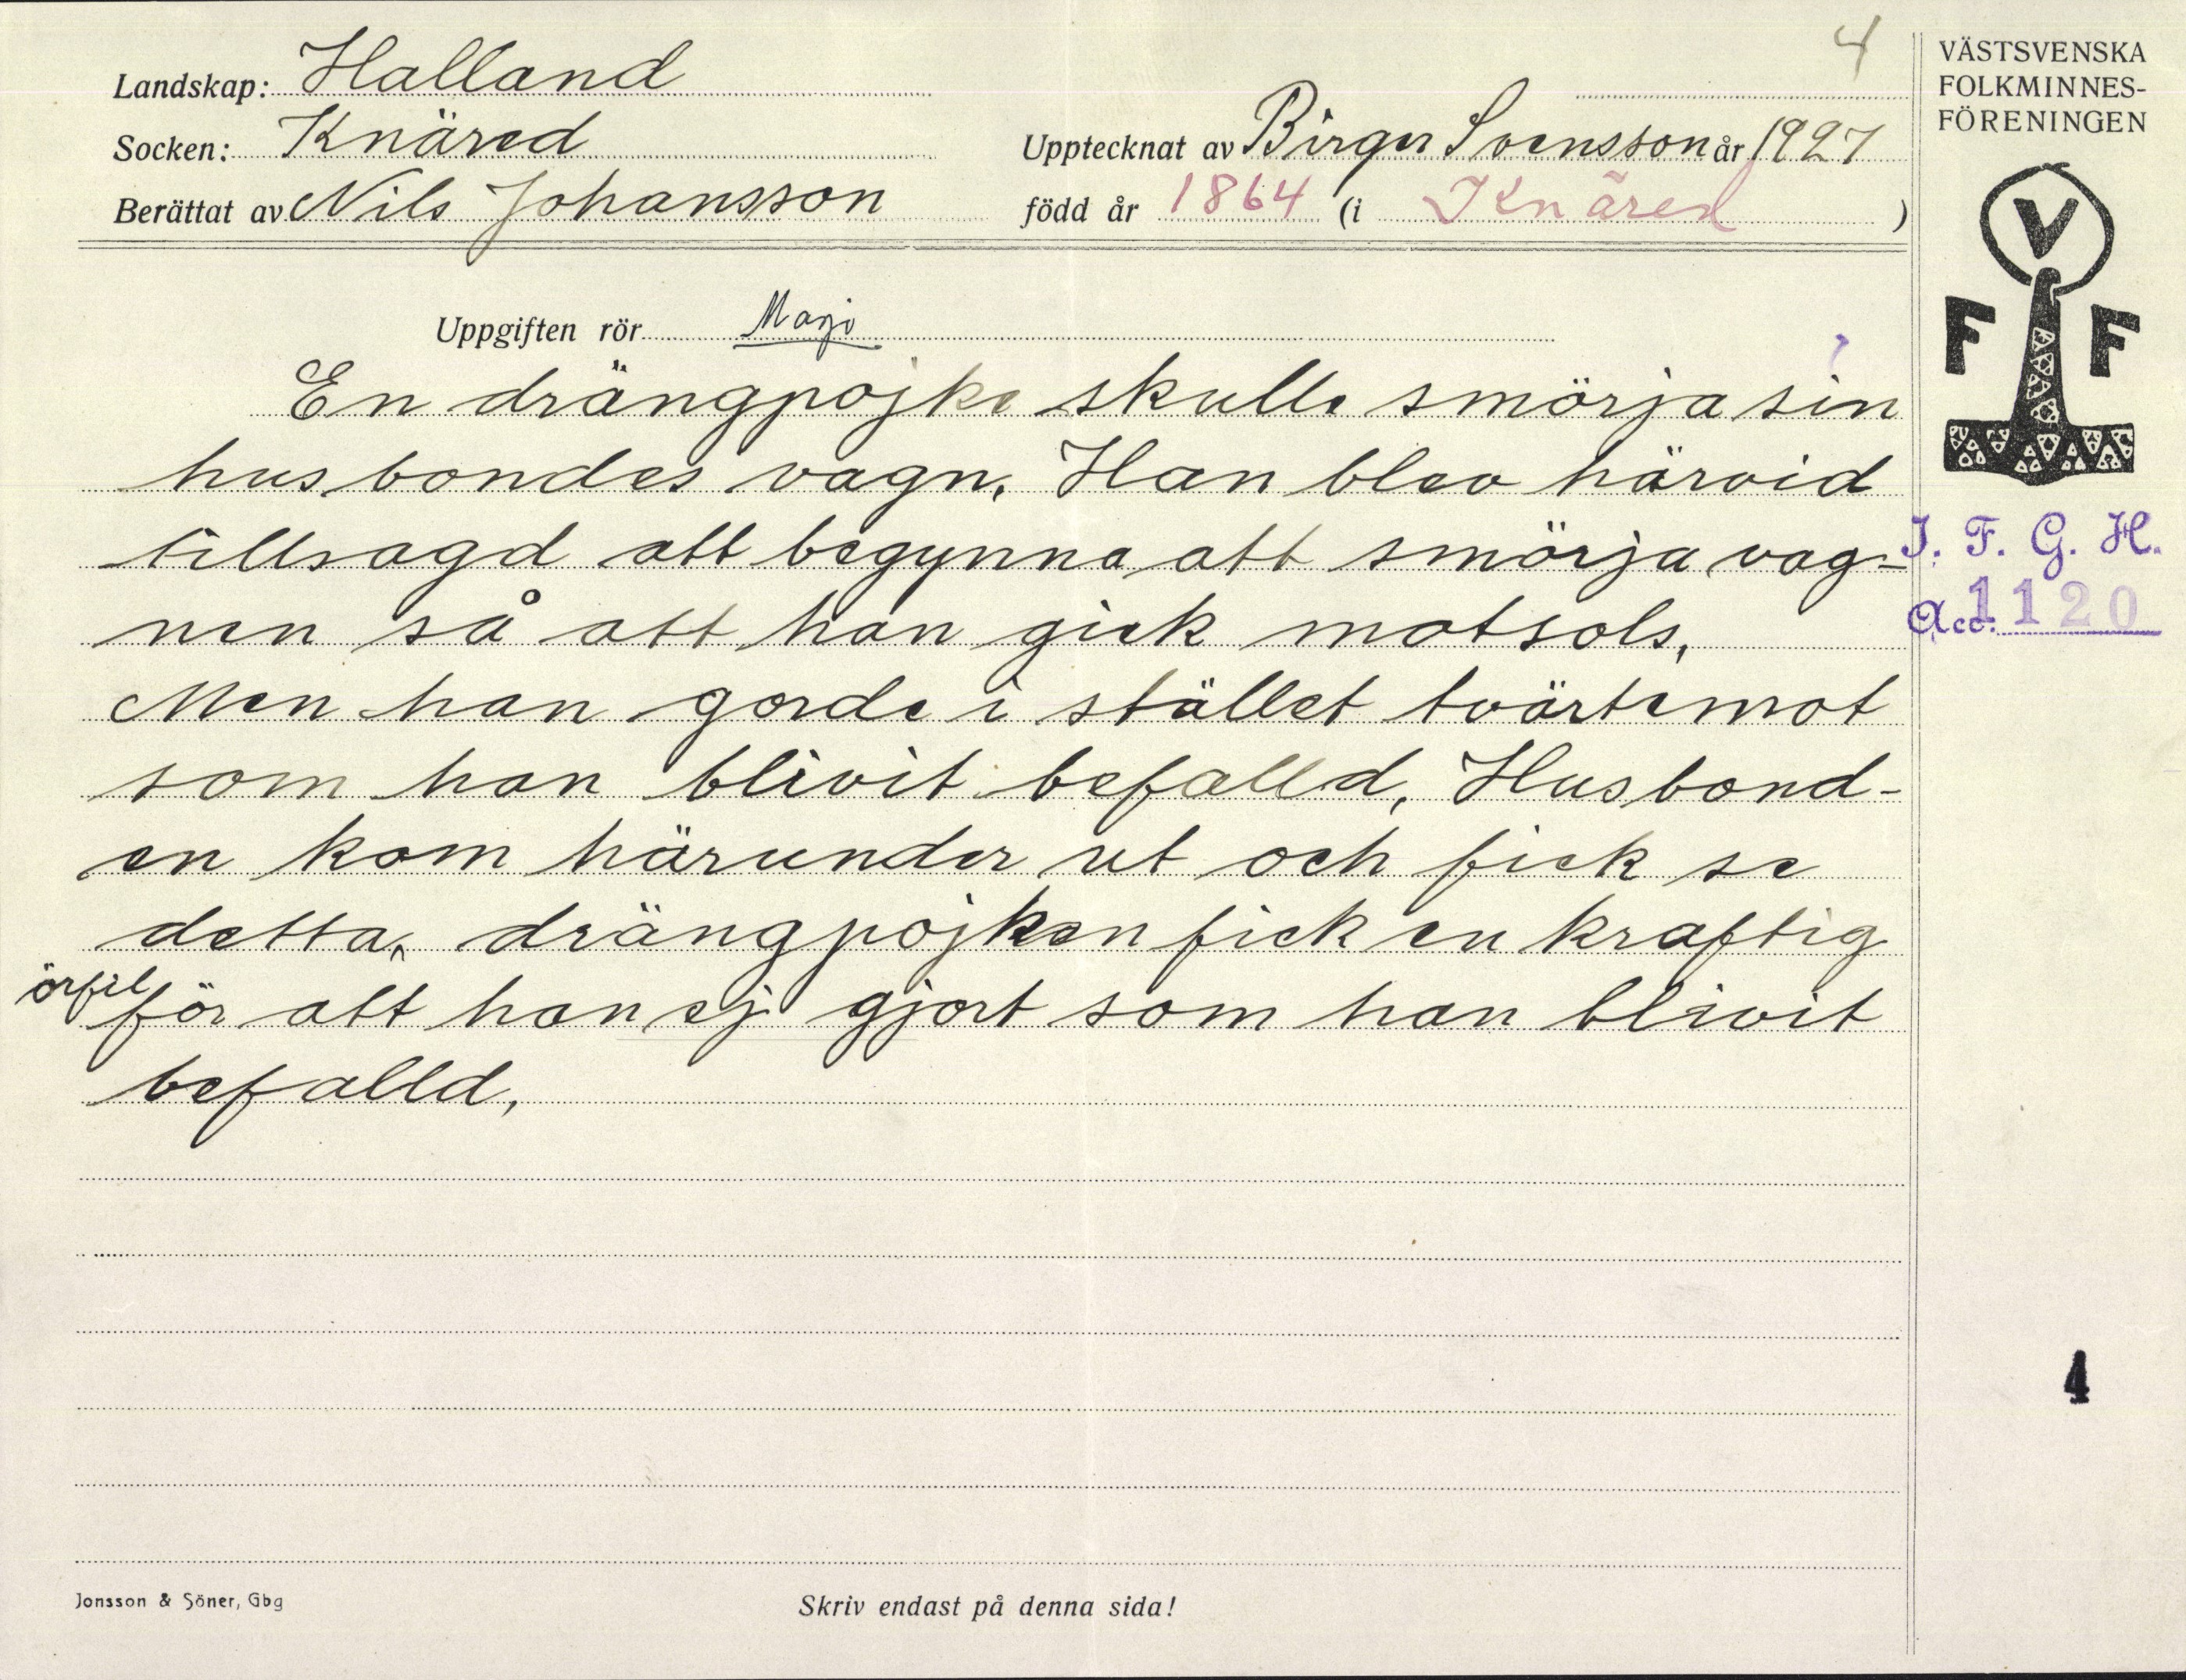 4
Landskap: Halland
Socken: Knäred
Upptecknat av Birger Svensson år 1927
Berättat av Nils Johansson
född år 1864 (i Knäred )
Uppgiften rör Magi
En drängpojke skulle smörja sin
husbondes vagn. Han blev härvid
tillsagd att begynna att smörja vag-
nen så att han gick motsols,
Men han gorde i stället tvärtemot
som han blivit befalld, Husbond-
en kom härunder ut och fick se
detta, drängpojken fick en kraftig
örfil för att han ej gjort som han blivit
befalld,
Jonsson & Söner, Gbg
Skriv endast på denna sida!
VÄSTSVENSKA
FOLKMINNES-
FÖRENINGEN
V
F F
I. F. G. H.
Acc. 1120
4